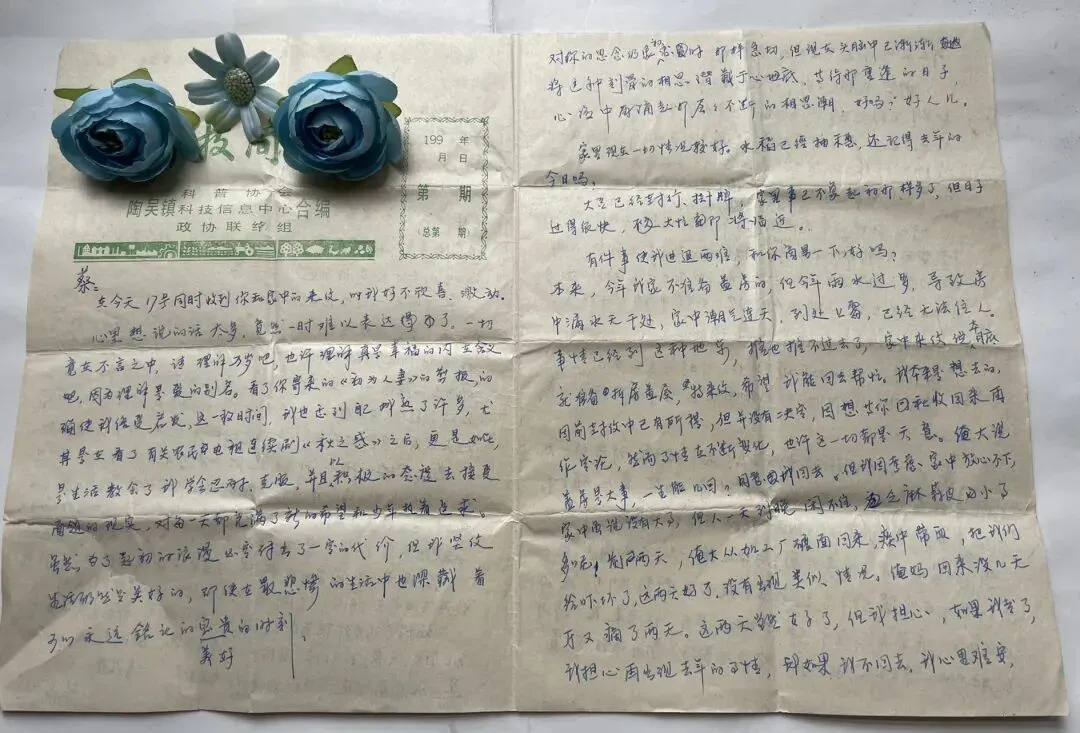 报
199 年
月 日
第 期
总第 期
科普协会
陶吴镇科技信息中心合编
政协联络组
蔡:
在今天17号同时收到你和家中的来信,叫我好不欣喜、激动。
心里想说的话太多,竟然一时难以表达。一切
竟在不言之中,请理解万岁吧,也许理解真是幸福的内在含义
吧,因为理解是爱的别名。看了你寄来的《初为人妻》的剪报,的
确使我倍受启发,这一段时间,我也感到成熟了许多,尤
其是在看了有关农民电视连续剧《秋之惑》之后,更是如此,
是生活教会了我学会忍耐、克服,并且以积极的态度去接受
的现实,对每一天都充满了新的希望和执着追求。
虽然为了起初的浪漫必定付出了一定的代价,但我坚信
生活仍然是美好的,即使在最悲惨的生活中也深藏着
可以永远铭记的宝贵的时刻。
美好
对你的思念仍象初求图时那样急切,但现在头脑中已渐渐
将这种刻骨的相思潜藏于心地底,等待那重逢的日子,
心海中再涌起那层层不断的相思潮,好吗?好人儿。
家里现在一切情况较好。水稻已经抽穗,还记得去年的
今日吗?
大豆已经封行、挂牌,家里事已不象起初那样多了,但日子
过得很快,秋大忙即将临近。
有件事使我进退两难,和你商量一下,好吗?
本来,今年我家不准备盖房的,但今年雨水过多,导致房
中漏水无干处,家中潮气连天,到处上霉,已经无法住人。
事情已经到这种地步,拖也拖不过去了,家中来信说,月底
就准备拆房盖屋,特来信,希望我能回去帮忙。我本来是想去的,
因前封信中已有所提,但并没有决定,因想等你回杜收回来再
作定论,然而事情在不断变化,也许这一切都是天意。俺大说
盖房是大事,一生能几回?同意我回去。但我因考虑家中放心不下,
家中虽说没有大事,但人一天到晚闲不住,
多吃,前两天,俺大从加工厂磨面回来,痰中带血,把我们
给吓坏了,这两天好了,没有出现类似情况。俺妈回来没几天
牙又痛了两天。这两天虽然好了,但我担心,如果我走了,
我担心再出现去年的事情,我如果不回去,我心里难安,